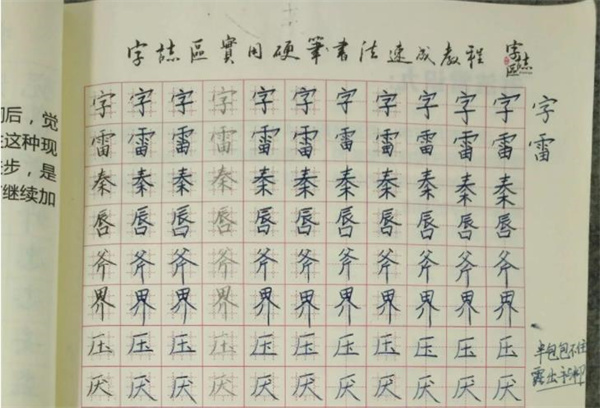 后，觉
这种现
步，是
继续加
字誌區實用硬筆書法速成教程 字誌區
字 字 字 字 字 字 字 字 字 字 字 字
雷 雷 雷 雷 雷 雷 雷 雷 雷 雷 雷 雷
秦 秦 秦 秦 秦 秦 秦 秦 秦 秦 秦
唇 唇 唇 唇 唇 唇 唇 唇 唇 唇 唇
斧 斧 斧 斧 斧 斧 斧 斧 斧 斧 斧
界 界 界 界 界 界 界 界 界 界 界
压 压 压 压 压 压 压 压 压 压 压
厌 厌 厌 厌 厌 厌 厌 厌 厌 厌 厌
半包包不住
露出